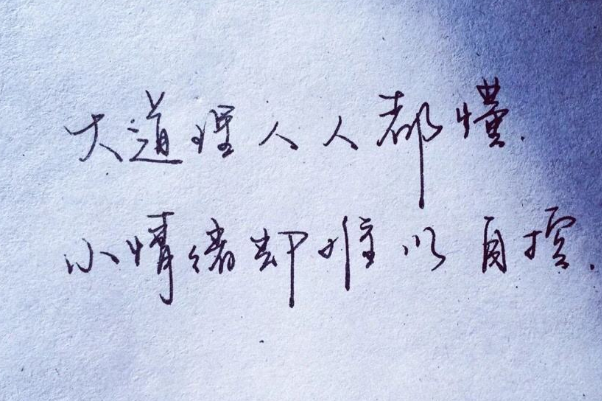 大道理人人都懂.
小情绪却难以自控.